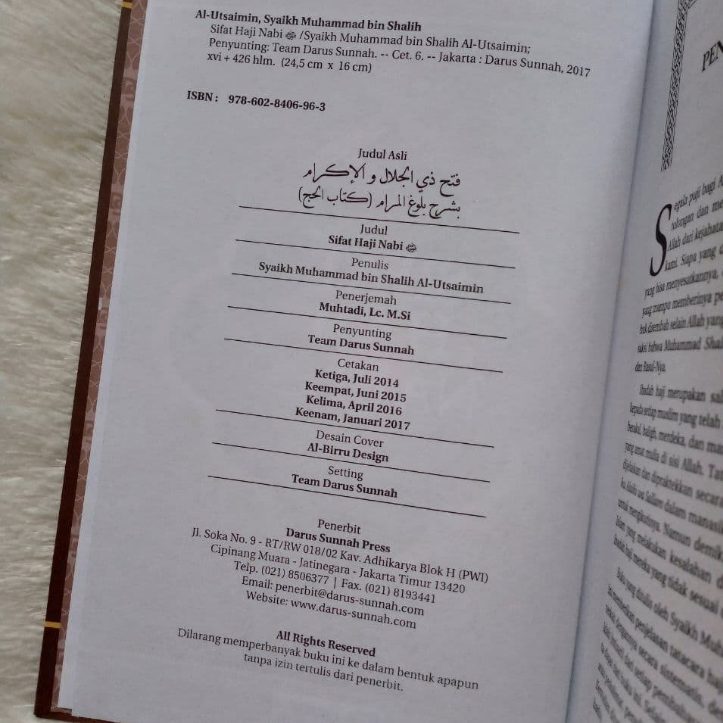 Al-Utsaimin, Syaikh Muhammad bin Shalih
Sifat Haji Nabi ﷺ /Syaikh Muhammad bin Shalih Al-Utsaimin;
Penyunting: Team Darus Sunnah. -- Cet. 6. -- Jakarta : Darus Sunnah, 2017
xvi + 426 hlm. (24,5 cm x 16 cm)
ISBN : 978-602-8406-96-3
Judul Asli
فتح ذي الجلال و الإكرام
بشرح بلوغ المرام (كتاب الحج)
Judul
Sifat Haji Nabi ﷺ
Penulis
Syaikh Muhammad bin Shalih Al-Utsaimin
Penerjemah
Muhtadi, Lc. M.Si
Penyunting
Team Darus Sunnah
Cetakan
Ketiga, Juli 2014
Keempat, Juni 2015
Kelima, April 2016
Keenam, Januari 2017
Desain Cover
Al-Birru Design
Setting
Team Darus Sunnah
Penerbit
Darus Sunnah Press
Jl. Soka No. 9 - RT/RW 018/02 Kav. Adhikarya Blok H (PWI)
Cipinang Muara - Jatinegara - Jakarta Timur 13420
Telp. (021) 8506377 | Fax. (021) 8193441
Email: penerbit@darus-sunnah.com
Website: www.darus-sunnah.com
All Rights Reserved
Dilarang memperbanyak buku ini ke dalam bentuk apapun
tanpa izin tertulis dari penerbit.
Segala puji bagi
Allah dari
kami. Siapa yang
yang bisa menyesatkannya,
yang mampu memberinya
selain Allah yang
saksi bahwa Muhammad
dan Rasul-Nya.
Ibadah haji merupakan
kepada setiap muslim yang telah
berakal, baligh, merdeka, dan
yang amat mulia di sisi Allah.